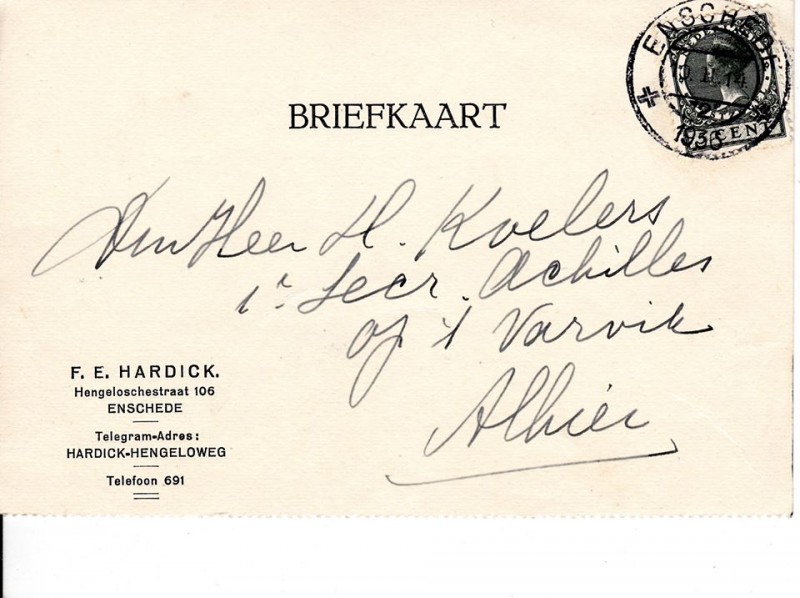 ENSCHEDE
NEDERLAND
1936
CENT
BRIEFKAART
Den Heer H. Koelers
1e Secr. Achilles
op 't Varvik
Alhier
F. E. HARDICK.
Hengeloschestraat 106
ENSCHEDE
Telegram-Adres:
HARDICK-HENGELOWEG
Telefoon 691